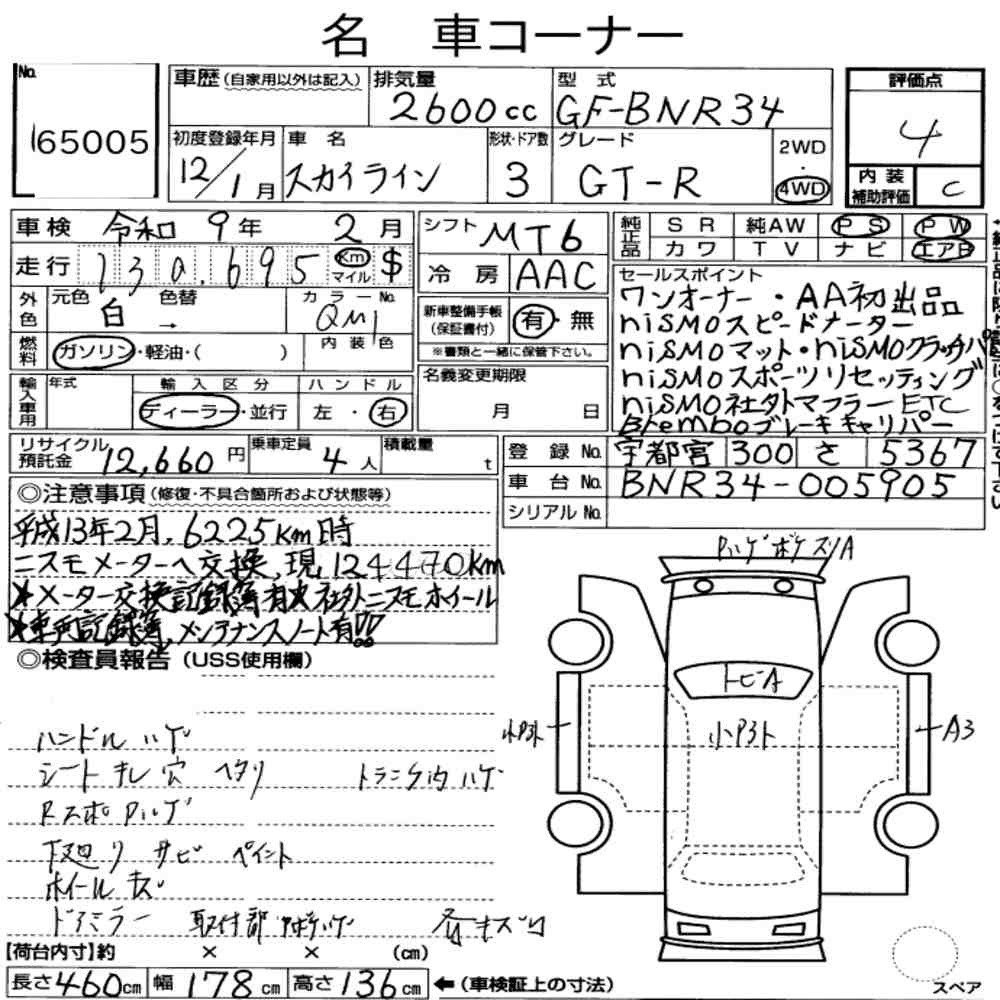 名 車コーナー
No.
165005
車歴(自家用以外は記入)
排気量
2600cc
型式
GF-BNR34
評価点
4
初度登録年月
12/1月
車名
スカイライン
形状・ドア数
3
グレード
GT-R
2WD
・
4WD
内装
補助評価
C
車検 令和 9年 2月
シフト MT6
純正品
SR 純AW PS PW
カワ TV ナビ エアB
走行 130,695 Km マイル $
冷房 AAC
セールスポイント
ワンオーナー・AA初出品
nismoスピードメーター
nismoマット・nismoクラッチ
nismoスポーツリセッティング
nismo社外マフラーETC
Bremboブレーキキャリパー
外色
元色 白 色替 →
カラーNo.
QM1
新車整備手帳
(保証書付)
有・無
※書類と一緒に保管下さい。
燃料
ガソリン・軽油・( )
内装色
輸入車用
年式
輸入区分
ディーラー・並行
ハンドル
左・右
名義変更期限
月 日
リサイクル
預託金
12,660円
乗車定員
4人
積載量
t
登録No. 宇都宮 300 さ 5367
車台No. BNR34-005905
シリアルNo.
◎注意事項(修復・不具合箇所および状態等)
平成13年2月、6225Km時
ニスモメーターへ交換、現、124470Km
*メーター交換記録簿有 社外ニスモホイール
*車両記録簿、メンテナンスノート有!!
◎検査員報告(USS使用欄)
ハンドル ハゲ
シート キレ 穴 ヘタリ トランク内 ハゲ
Rスポ Pハゲ
下廻り サビ ペイント
ホイール キズ
ドアミラー 取付部
各キズ
トビA
小P3ト
A3
【荷台内寸】約 × × (cm)
長さ460cm 幅178cm 高さ136cm ←(車検証上の寸法)
スペア